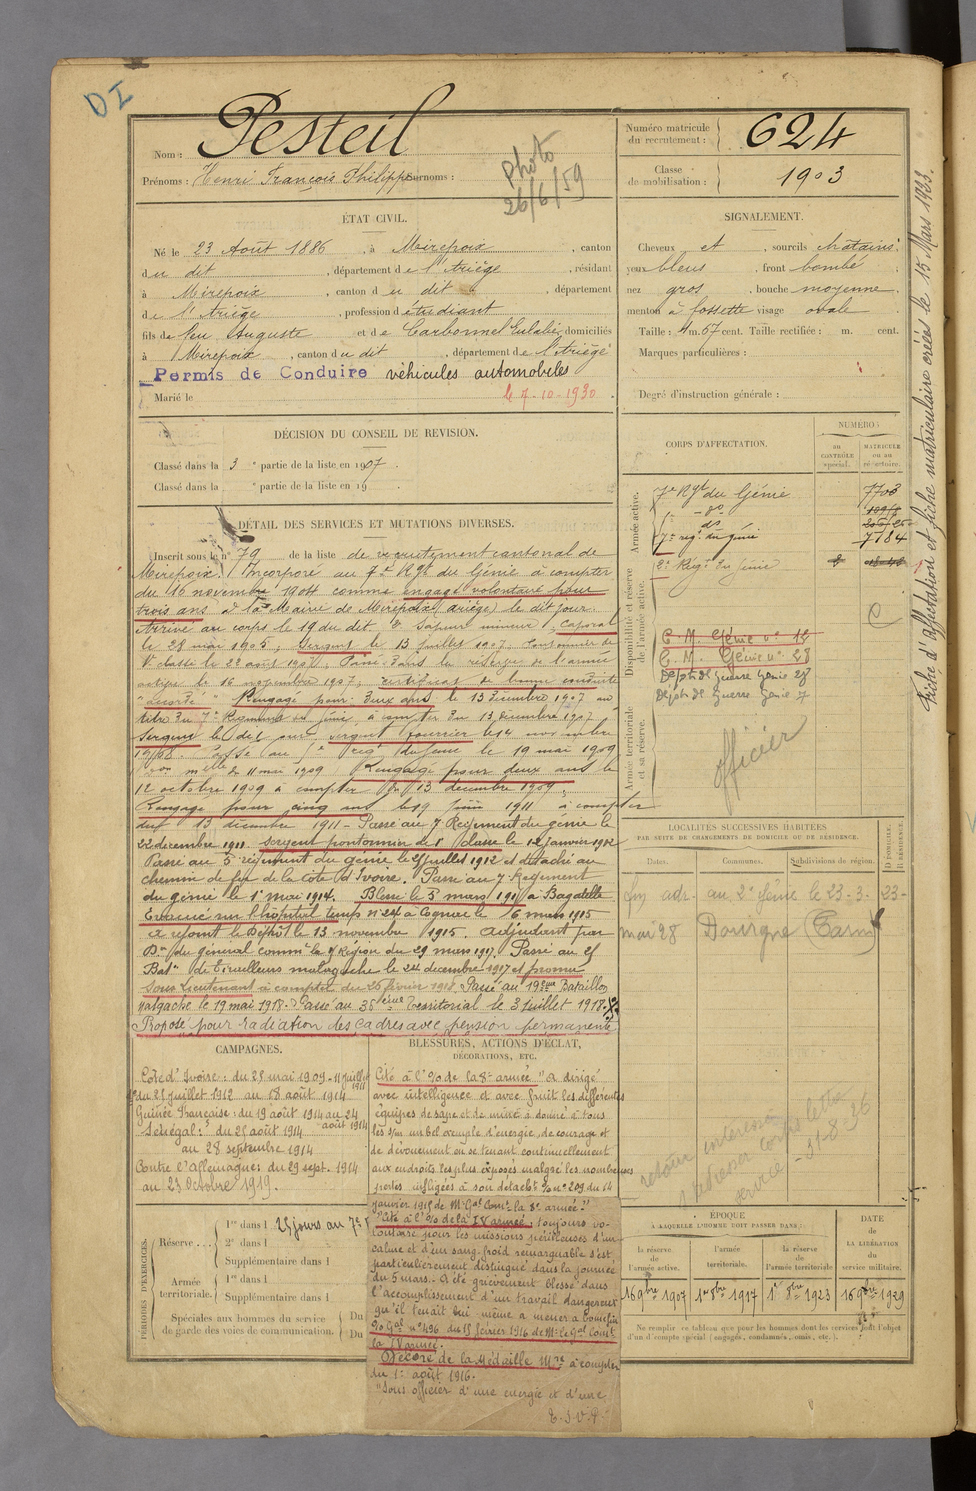 DI
Nom : Pesteil
Prénoms : Henri François Philippe Surnoms :
Photo
26/6/59
Numéro matricule du recrutement : 624
Classe de mobilisation : 1903
ÉTAT CIVIL.
Né le 23 Août 1886, à Mirepoix, canton
du dit, département de l'Ariège, résidant
à Mirepoix, canton du dit, département
de l'Ariège, profession d'étudiant
fils de feu Auguste et de Carbonnel Eulalie, domiciliés
à Mirepoix, canton du dit, département de l'Ariège
Permis de Conduire véhicules automobiles
Marié le
le 7-10-1930
SIGNALEMENT.
Cheveux et, sourcils châtains.
yeux bleus, front bombé
nez gros, bouche moyenne
menton à fossette visage ovale
Taille : 1 m. 67 cent. Taille rectifiée : m. cent.
Marques particulières :
Degré d'instruction générale :
Fiche d'affectation et fiche matriculaire créées le 15 Mars 1933.
DÉCISION DU CONSEIL DE REVISION.
Classé dans la 3e partie de la liste en 1907.
Classé dans la e partie de la liste en 19
DÉTAIL DES SERVICES ET MUTATIONS DIVERSES.
Inscrit sous le n° 79 de la liste de recrutement cantonal de
Mirepoix. Incorporé au 7e Rgt du Génie à compter
du 16 novembre 1904 comme engagé volontaire pour
trois ans à la Mairie de Mirepoix (Ariège) le dit jour.
Arrivé au corps le 19 du dit 2e Sapeur mineur, caporal
le 28 mai 1905; Sergent le 13 juillet 1907
classe le 22 août 1907. Passé dans la réserve de l'armée
active le 16 novembre 1907; certificat de bonne conduite
"accordé" Rengagé pour deux ans le 13 décembre 1907 au
titre du 7e Régiment du génie, à compter du 13 décembre 1907
Sergent le d. jour sergent fourrier le 14 novembre
1908. Passé au Reg. du Génie le 19 mai 1909
11 mai 1909 Rengagé pour deux ans le
12 octobre 1909 à compter du 13 décembre 1909;
Rengagé pour cinq ans le 19 juin 1911 à compter
du 13 décembre 1911 - Passé au 7 Régiment du génie le
22 décembre 1911 sergent pontonnier de 1e classe le 12 janvier 1912
Passé au 5 régiment du génie le 25 juillet 1912 et détaché au
chemin de fer de la côte d'Ivoire. Passé au 7e Régiment
du génie le 1er mai 1914. Blessé le 5 mars 1915 à Bagatelle
Evacué sur l'hôpital temps n° 24 à Cognac le 16 mars 1915
a rejoint le Dépôt le 13 novembre 1915. adjudant par
Don du général commt la 9 Région du 29 mars 1917. Passé au 25
Batn de Tirailleurs malgache le 24 décembre 1917 et promu
Sous Lieutenant à compter du 25 février 1918. Passé au 19ème Bataillon
malgache le 19 mai 1918. Passé au 36ème Territorial le 3 juillet 1918.
Proposé pour radiation des cadres avec pension permanente
CORPS D'AFFECTATION.
NUMÉROS
au CONTRÔLE spécial.
MATRICULE ou au répertoire.
Armée active.
7e Rgt du Génie 7703
- do
ds
7e reg. du génie 7184
2e Régt du Génie
Disponibilité et réserve de l'armée active.
C. M. Génie n° 18
C. M. Génie n° 28
Dépôt de Guerre Génie 28
Dépôt de Guerre Génie 7
Armée territoriale et sa réserve.
officier
LOCALITÉS SUCCESSIVES HABITÉES
PAR SUITE DE CHANGEMENTS DE DOMICILE OU DE RÉSIDENCE.
Dates.
Communes.
Subdivisions de région.
D DOMICILE. R RÉSIDENCE.
au 2e Génie le 23-3-23-
mai 28 Dourgne (Tarn)
31-8-36
CAMPAGNES.
Côte d'Ivoire : du 25 mai 1909 - 11 juillet 1911
du 25 juillet 1912 au 18 août 1914
Guinée Française : du 19 août 1914 au 24 août 1914
Sénégal : du 25 août 1914
au 28 septembre 1914
Contre l'Allemagne : du 29 sept. 1914
au 23 octobre 1919.
BLESSURES, ACTIONS D'ÉCLAT,
DÉCORATIONS, ETC.
Cité à l'% de la 8e armée "a dirigé
avec intelligence et avec fruit les différentes
équipes de sape et de mine a donné à tous
les s/m un bel exemple d'énergie, de courage et
de dévouement en se tenant continuellement
aux endroits les plus exposés malgré les nombreuses
pertes infligées à son détacht % n° 209 du 14
janvier 1915 de Mr Gal Comt la 8e armée."
"Cité à l'% de la IV armée : toujours vo-
lontaire pour les missions périlleuses d'un
calme et d'un sang froid remarquable s'est
particulièrement distingué dans la journée
du 5 mars. A été grièvement blessé dans
l'accomplissement d'un travail dangereux
qu'il tenait lui-même à mener à bonne fin
% Gal n° 496 du 15 février 1916 de Mr le Gal Comt
la IV armée.
Décoré de la Médaille Mre à compter
du 1er août 1916.
"Sous officier d'une énergie et d'une
T.S.V.P.
PÉRIODES D'EXERCICES.
Réserve ....
1re dans l 25 jours au 7e
2e dans l
Supplémentaire dans l
Armée territoriale.
1re dans l
Supplémentaire dans l
Spéciales aux hommes du service de garde des voies de communication.
Du
Du
ÉPOQUE
À LAQUELLE L'HOMME DOIT PASSER DANS :
la réserve de l'armée active.
l'armée territoriale.
la réserve de l'armée territoriale
DATE de LA LIBÉRATION du service militaire.
16 9bre 1907
1er 8bre 1917
1er 8bre 1923
16 9bre 1929
Ne remplir ce tableau que pour les hommes dont les services font l'objet
d'un compte spécial (engagés, condamnés, omis, etc.).